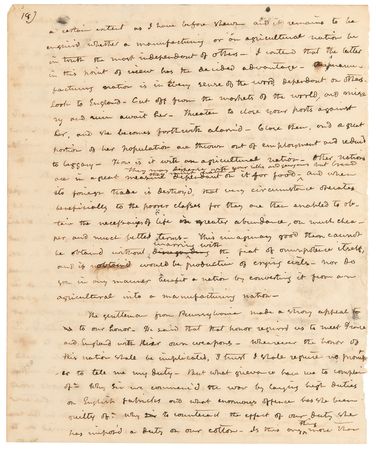 19)
a certain extent as I have before shewn and it remains to be
enquired whether a manufacturing or an agricultural nation be
in truth the most independent of others. I contend that the latter
in this point of view has the decided advantage. A manu-
facturing nation is in every sense of the word dependent on others.
Look to England. Cut off from the markets of the world, and misery
and ruin await her. Threaten to close your ports against
her, and she becomes forthwith alarmed. Close them, and a great
portion of her population are thrown out of employment and reduced
to beggary. How is it with an agricultural nation. Other nations
They may dispense with your silks and gewgaws but bread
are in a great measure dependent on it for food, and when
its foreign trade is destroy'd, that very circumstance operates
beneficially to the poorer classes for they are then enabled to ob-
tain the necessaries of life in greater abundance, on much cheap-
er, and much better terms. This imaginary good then cannot
warring with
be obtained without the fiat of omnipotence itself,
and if obtained would be productive of crying evils. nor do
you in any manner benefit a nation by converting it from an
agricultural into a manufacturing nation.
The gentleman from Pennsylvania made a strong appeal
to our honor. He said that that honor required us to meet France
and England with their own weapons. Whenever the honor of
this nation shall be implicated, I trust I shall require no promp-
er to tell me my duty. But what grievance have we to complain
of? Why Sir we commenc'd the war by laying high duties
on English fabricks and what enormous offence has she been
guilty of? Why to counteract the effect of our duty she
has imposed a duty on our cotton. Is this any thing more than